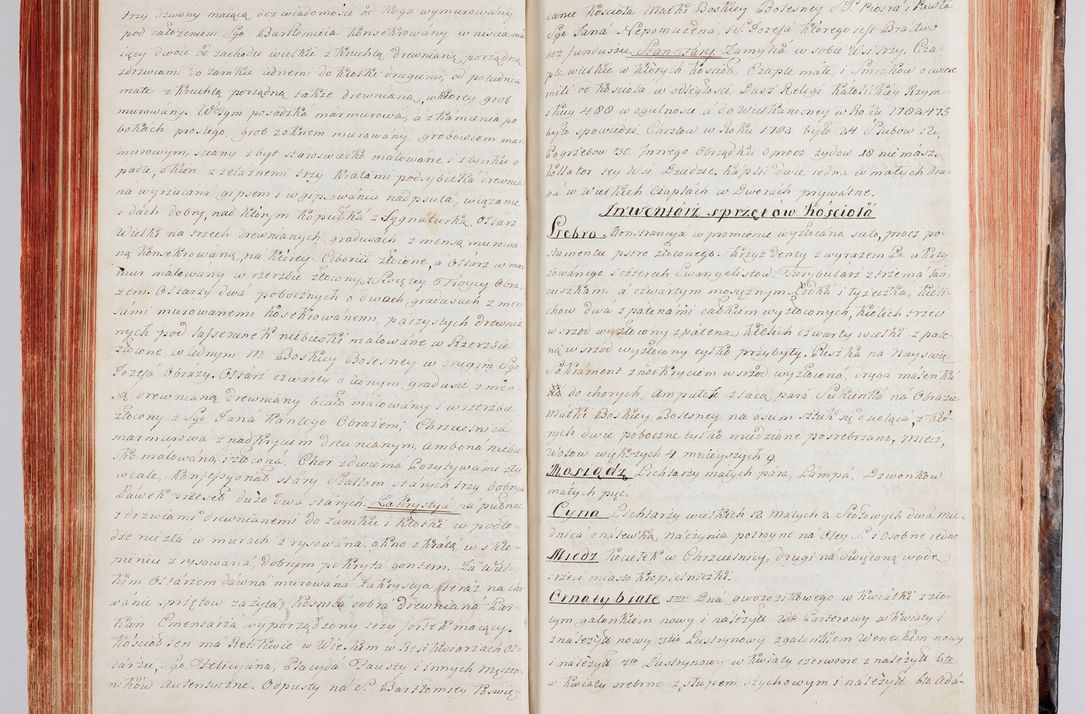 trzy dzwony maiącą bez wiadomości od kogo wymurowany
pod założeniem Sgo Bartłomieia konsekrowany w niscia ma
iący dwoie od zachodu wielki z kruchtą drewnianą porządną
zdrzwiami do zamku iednemi do kłotki drugiemi, od południa
małe z kruchtą porządną także drewnianą, w którey grob
murowany. W tym posadzka marmurowa, a z kamienia po
bokach prostego, grob z oknem murowany, grobowcem mar
murowym, sciany zbyt staroswiecko malowane i z tynku o
padłe, okien z żelaznemi trzy kratami podsybitka drewnia
na wyrzucana gipsem i wgipsowanie nadpsuta, wiązanie
i dach dobry, nad którym kopułka z Sygnaturką, Ołtarz
Wielki na trzech drewnianych gradusach z mensą murowa
ną konsekrowaną na którey Ciborium złocone, a Ołtarz w mar
mur malowany w rzerzbie złocony, Swiętey Troycy Obra
zem. Ołtarzy dwa pobocznych o dwoch gradusach z men
sami murowanemi konsekrowanemi, parzystych drewnia
nych pod lasserenek niebieski malowane w Rzerzbie
złocone, w iednym M. Boskiey Bolesney w drugim Sgo
Jozefa Obrazy. Ołtarz czwarty o iednym gradusie z men
są drewnianą drewniany biało malowany i w rzerzbie
złocony z Sgo Jana Kantego Obrazem; Chrzcielnica
marmurowa z nadkryciem drewnianym, ambona niebie
sko malowana i złocona. Chor z dwiema pozytywami zły
wcale, konfessyonał stary Stallow starych trzy dobrych
Ławek sześć dużo dwa starych. Zakrystya na pułnoc
z drzwiami drewnianemi do zamku i kłotki w podło
dze niezła w murach zrysowana, okno z kratą, w skle
pieniu zrysowana, dobrym pokryta gontem. Za wiel
kim Ołtarzem dawna murowana Zakrystya teraz na cho
wanie sprzętow zażyta, kosnica dobra drewniana Par
kan Cmentarza wyporządzony trzy fortek maiący.
Kościoł ten ma Relikwie w Wielkim w Relikwiarzach Oł
tarzu, Sgo Felicyana, Placyda Fausty i innych męczen
ników autentyczne. Odpusty na S. Bartłomiey Poswię
canie Kościoła Matki Boskiey Bolesney SS. Piotra i Pawła
Sgo Jana Nepomucena, i S. Jozefa którego jest Bractwo
bez funduszu. Stan Fary Zamyka w sobie Wsi trzy. Cza
ple wielkie w których kościoł, Czaple małe, i Smroków o ćwierć
mili od kościoła w odległości Dusz Religi Katolickiey Rzym
skiey 488 w ogulności a do wielkanocney w Roku 1783 475
było spowiedzi. Chrztow w Roku 1783 było 24 Slubow 12,
Pogrzebow 30. Innego Obrządku oprocz żydow 18 niemasz.
Kollator tey Wsi Dziedzic, kaplic dwie iedna w małych dru
ga w Wielkich Czaplach w Dworach prywatne.
Inwentarz sprzętów kościoła
Srebro. Monstrancya w promienie wyzłacana suto, procz po
stumentu pstro złoconego. Krzyż denty z wyrazem Pa ukrzy
żowanego i czterech Ewangelistow. Turybularz z trzema łań
cuszkami a czwartym mosiężnym. Łodka i łyżeczka, kieli
chow dwa z patenami całkiem wyzłoconych, kielich trzeci
w srzod wyzłocony z pateną kielich czwarty wielki z pate
ną w srzod wyzłocony tylko przybyty. Puszka na Nayswię.
Sakrament z nakryciem w srzod wyzłocona, druga malenka
do chorych, Ampułek z tacą para Sukienka na Obrazie
Matki Boskiey Bolesney na osim sztuk się dzieląca, z któ
rych dwie poboczne tylko miedziane posrebrzane, miecz,
Wotow więkrzych 4 mnieyszych 9.
Mosiądz Lichtarzy małych para, Lampa, Dzwonkow
małych pięć.
Cyna Lichtarzy wielkich 12 małych 2 Stołowych dwa mie
dnica z nalewką, naczynia potroyne na Oley S. i osobne iedno
Miedz Kociełek w Chrzcielnicy, drugi na święconą wodę
trzeci miasto kropielniczki.
Ornaty białe 1mo Dna gwozdzikowego w kwiatki z zło
tym galonkiem nowy i należyt. 2do Parterowy w kwiaty i
z należyt. nowy 3tio Lustrynowy z galonkiem Weneckim nowy
i należyt. 4to Lustrynowy w kwiaty czerwone z należyt. 5to
w kwiaty srebrne z słupem sztychowym i należyt. 6to Ada-